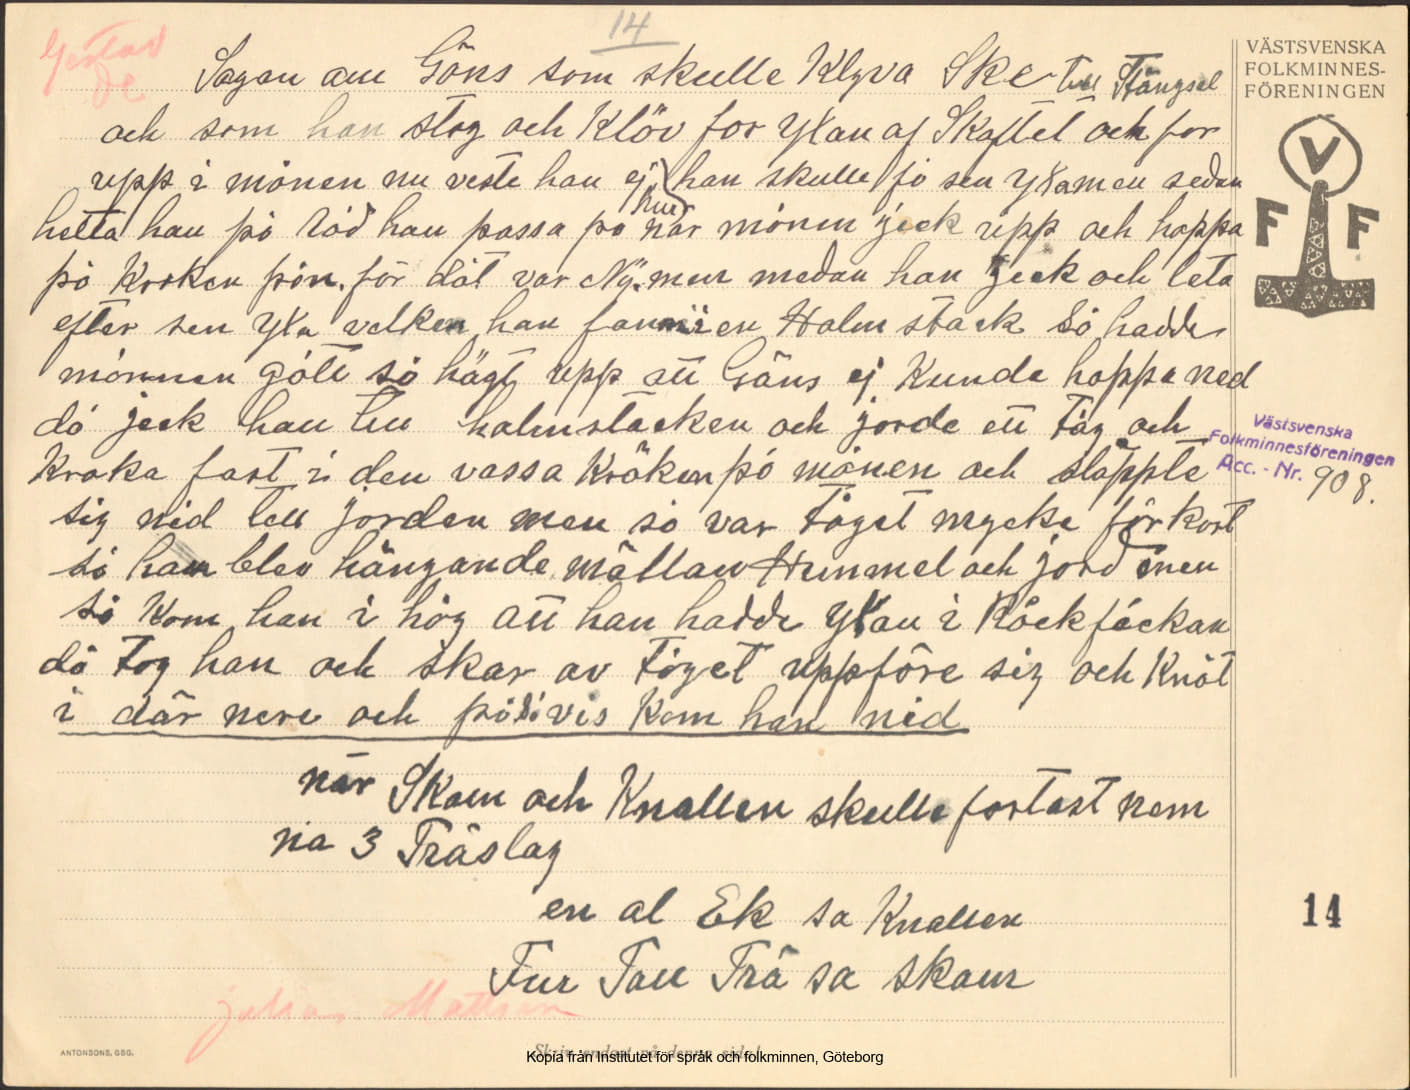 14
Sagan am Göns som skulle Klyva Ske till Stängsel
och som han stog och Klöv for Yxan af Skaftet och for
upp i mönen nu veste han ej hur han skulle fó sen Yxa men sedan
hetta han pó Ród han passa po när mónen jeck upp och hoppa
pó Kroken pón. för dät var Ny. men medan han jeck och leta
efter sen Yxa velken han fann i en Halmstack Só hadde
mónnen gótt só högt upp att Göns ej Kunde hoppa ned
dó jeck han till halmstacken och jorde ett Tóg och
Kroka fast i den vassa Kröken pó mónen och slöppte
sig nid till jorden men só var Tóget mycke för kort
só han blev hängande mällan Himmel och jord men
só Kom han i hóg att han hadde Yxan i Róckfóckan
dó tog han och skar av Tóget uppföre sig och Knöt
i där nere och pó só vis Kom han nid
när Skam och Knallen skulle fortast nem
na 3 Träslag
en al Ek sa Knallen
Fur Tall Trä sa Skam
VÄSTSVENSKA
FOLKMINNES-
FÖRENINGEN
V
F F
Västsvenska
Folkminnesföreningen
Acc. - Nr. 908.
14
ANTONSONS, GBG.
Skriv endast på denna sida!
Kopia från Institutet för språk och folkminnen, Göteborg